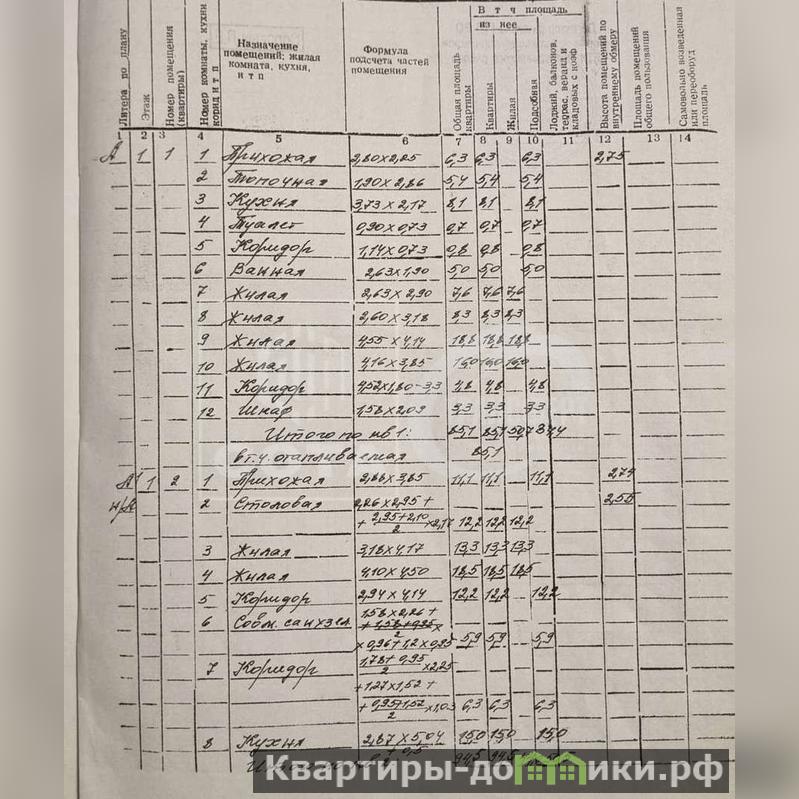 В т ч площадь
из нее
Литера по плану
Этаж
Номер помещения (квартиры)
Номер комнаты, кухни корид и т п
Назначение помещений: жилая комната, кухня, и т п
Формула подсчета частей помещения
Общая площадь квартиры
Квартиры
Жилая
Подсобная
Лоджий, балконов, террас, веранд и кладовых с коэф
Высота помещений по внутреннему обмеру
Площадь помещений общего пользования
Самовольно возведенная или переоборуд площадь
1 2 3 4 5 6 7 8 9 10 11 12 13 14
А 1 1 1 Прихожая 2,80×2,25 6,3 6,3 6,3 2,75
2 Топочная 1,90×2,86 5,4 5,4 5,4
3 Кухня 3,73×2,17 8,1 8,1 8,1
4 Туалет 0,90×0,73 0,7 0,7 0,7
5 Коридор 1,14×0,73 0,8 0,8 0,8
6 Ванная 2,63×1,90 5,0 5,0 5,0
7 Жилая 2,63×2,90 7,6 7,6 7,6
8 Жилая 2,60×3,18 8,3 8,3 8,3
9 Жилая 4,55×4,14 18,8 18,8 18,8
10 Жилая 4,16×3,85 16,0 16,0 16,0
11 Коридор 4,52×1,80-3,3 4,8 4,8 4,8
12 Шкаф 1,58×2,09 3,3 3,3 3,3
Итого по кв 1: 85,1 85,1 50,7 34,4
в т.ч. отапливаемая 85,1
А¹ 1 2 1 Прихожая 2,88×3,85 11,1 11,1 11,1 2,74
н/А 2 Столовая 2,26×2,95+ 2,55
+ 2,95+2,10/2 ×2,17 12,2 12,2 12,2
3 Жилая 3,18×4,17 13,3 13,3 13,3
4 Жилая 4,10×4,50 18,5 18,5 18,5
5 Коридор 2,94×4,14 12,2 12,2 12,2
6 Совм. санузел 1,58×2,26+
+ 1,58+0,95/2 ×
×0,96+1,2×0,95 5,9 5,9 5,9
7 Коридор 1,78+0,95/2 ×2,25
+1,27×1,52+
+ 0,95+1,52/2 ×1,03 6,3 6,3 6,3
8 Кухня 2,87×5,04 15,0 15,0 15,0
+0,5
94,5 94,5
Квартиры-домики.рф